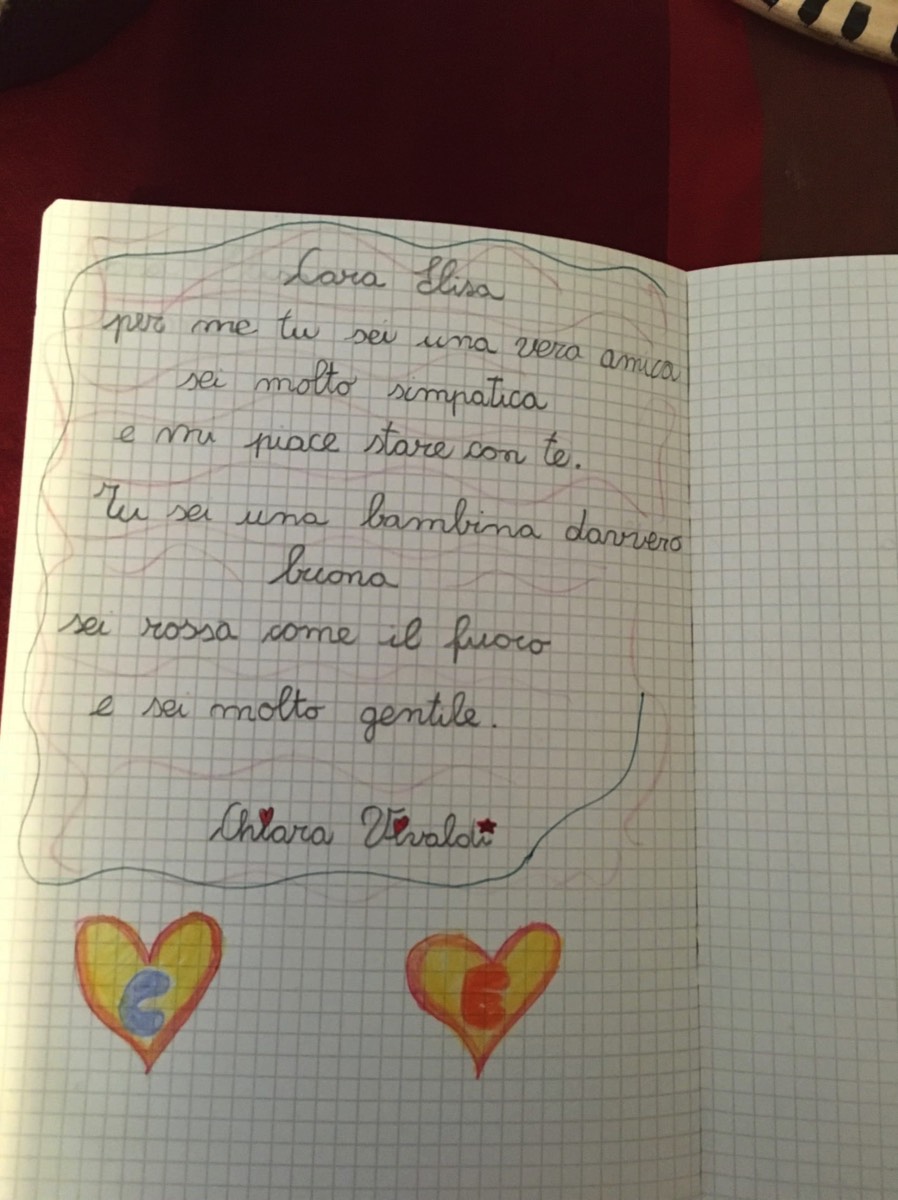 Cara Elisa
per me tu sei una vera amica
sei molto simpatica
e mi piace stare con te.
Tu sei una bambina davvero
buona
sei rossa come il fuoco
e sei molto gentile.
Chiara Vivaldi
C E